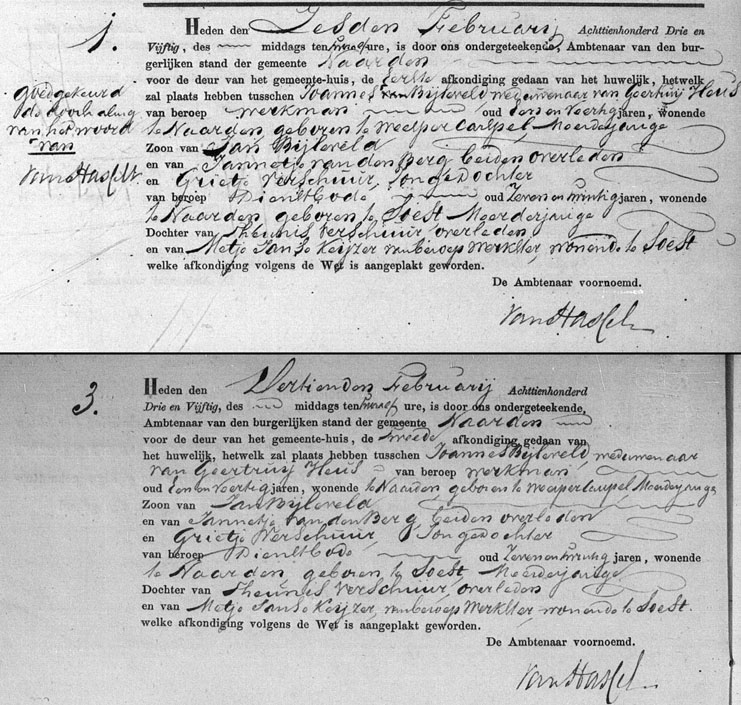 1.
Heden den Zesden Februarij Achttienhonderd Drie en
Vijftig, des middags ten twaalf ure, is door ons ondergeteekende, Ambtenaar van den bur-
gerlijken stand der gemeente Naarden
voor de deur van het gemeente-huis, de Eerste afkondiging gedaan van het huwelijk, hetwelk
zal plaats hebben tusschen Joannes van Bijleveld weduwenaar van Geertruij Heus
van beroep werkman oud Een en Veertig jaren, wonende
te Naarden, geboren te Weespercarspel, Meerderjarige
Zoon van Jan Bijleveld
en van Jannetje van den Berg beiden overleden
en Grietje Verschuur, Jonge Dochter
van beroep Dienstbode oud Zeven en twintig jaren, wonende
te Naarden geboren te Soest Meerderjarige
Dochter van Theunis Verschuur overleden
en van Metje Janse Keijzer van beroep Werkster, wonende te Soest
welke afkondiging volgens de Wet is aangeplakt geworden.
De Ambtenaar voornoemd.
Van Hasselt
goedgekeurd
de doorhaling
van het woord
van
Van Hasselt
3.
Heden den Dertienden Februarij Achttienhonderd
Drie en Vijftig, des middags ten twaalf ure, is door ons ondergeteekende,
Ambtenaar van den burgerlijken stand der gemeente Naarden
voor de deur van het gemeente-huis, de tweede afkondiging gedaan van
het huwelijk, hetwelk zal plaats hebben tusschen Joannes Bijleveld, weduwenaar
van Geertruij Heus van beroep werkman
oud Een en Veertig jaren, wonende te Naarden, geboren te Weespercarspel Meerderjarige
Zoon van Jan Bijleveld
en van Jannetje van den Berg beiden overleden
en Grietje Verschuur, Jonge dochter
van beroep Dienstbode oud Zeven en twintig jaren, wonende
te Naarden geboren te Soest Meerderjarige
Dochter van Theunis Verschuur, overleden
en van Metje Janse Keijzer, van beroep Werkster, wonende te Soest.
welke afkondiging volgens de Wet is aangeplakt geworden.
De Ambtenaar voornoemd.
Van Hasselt